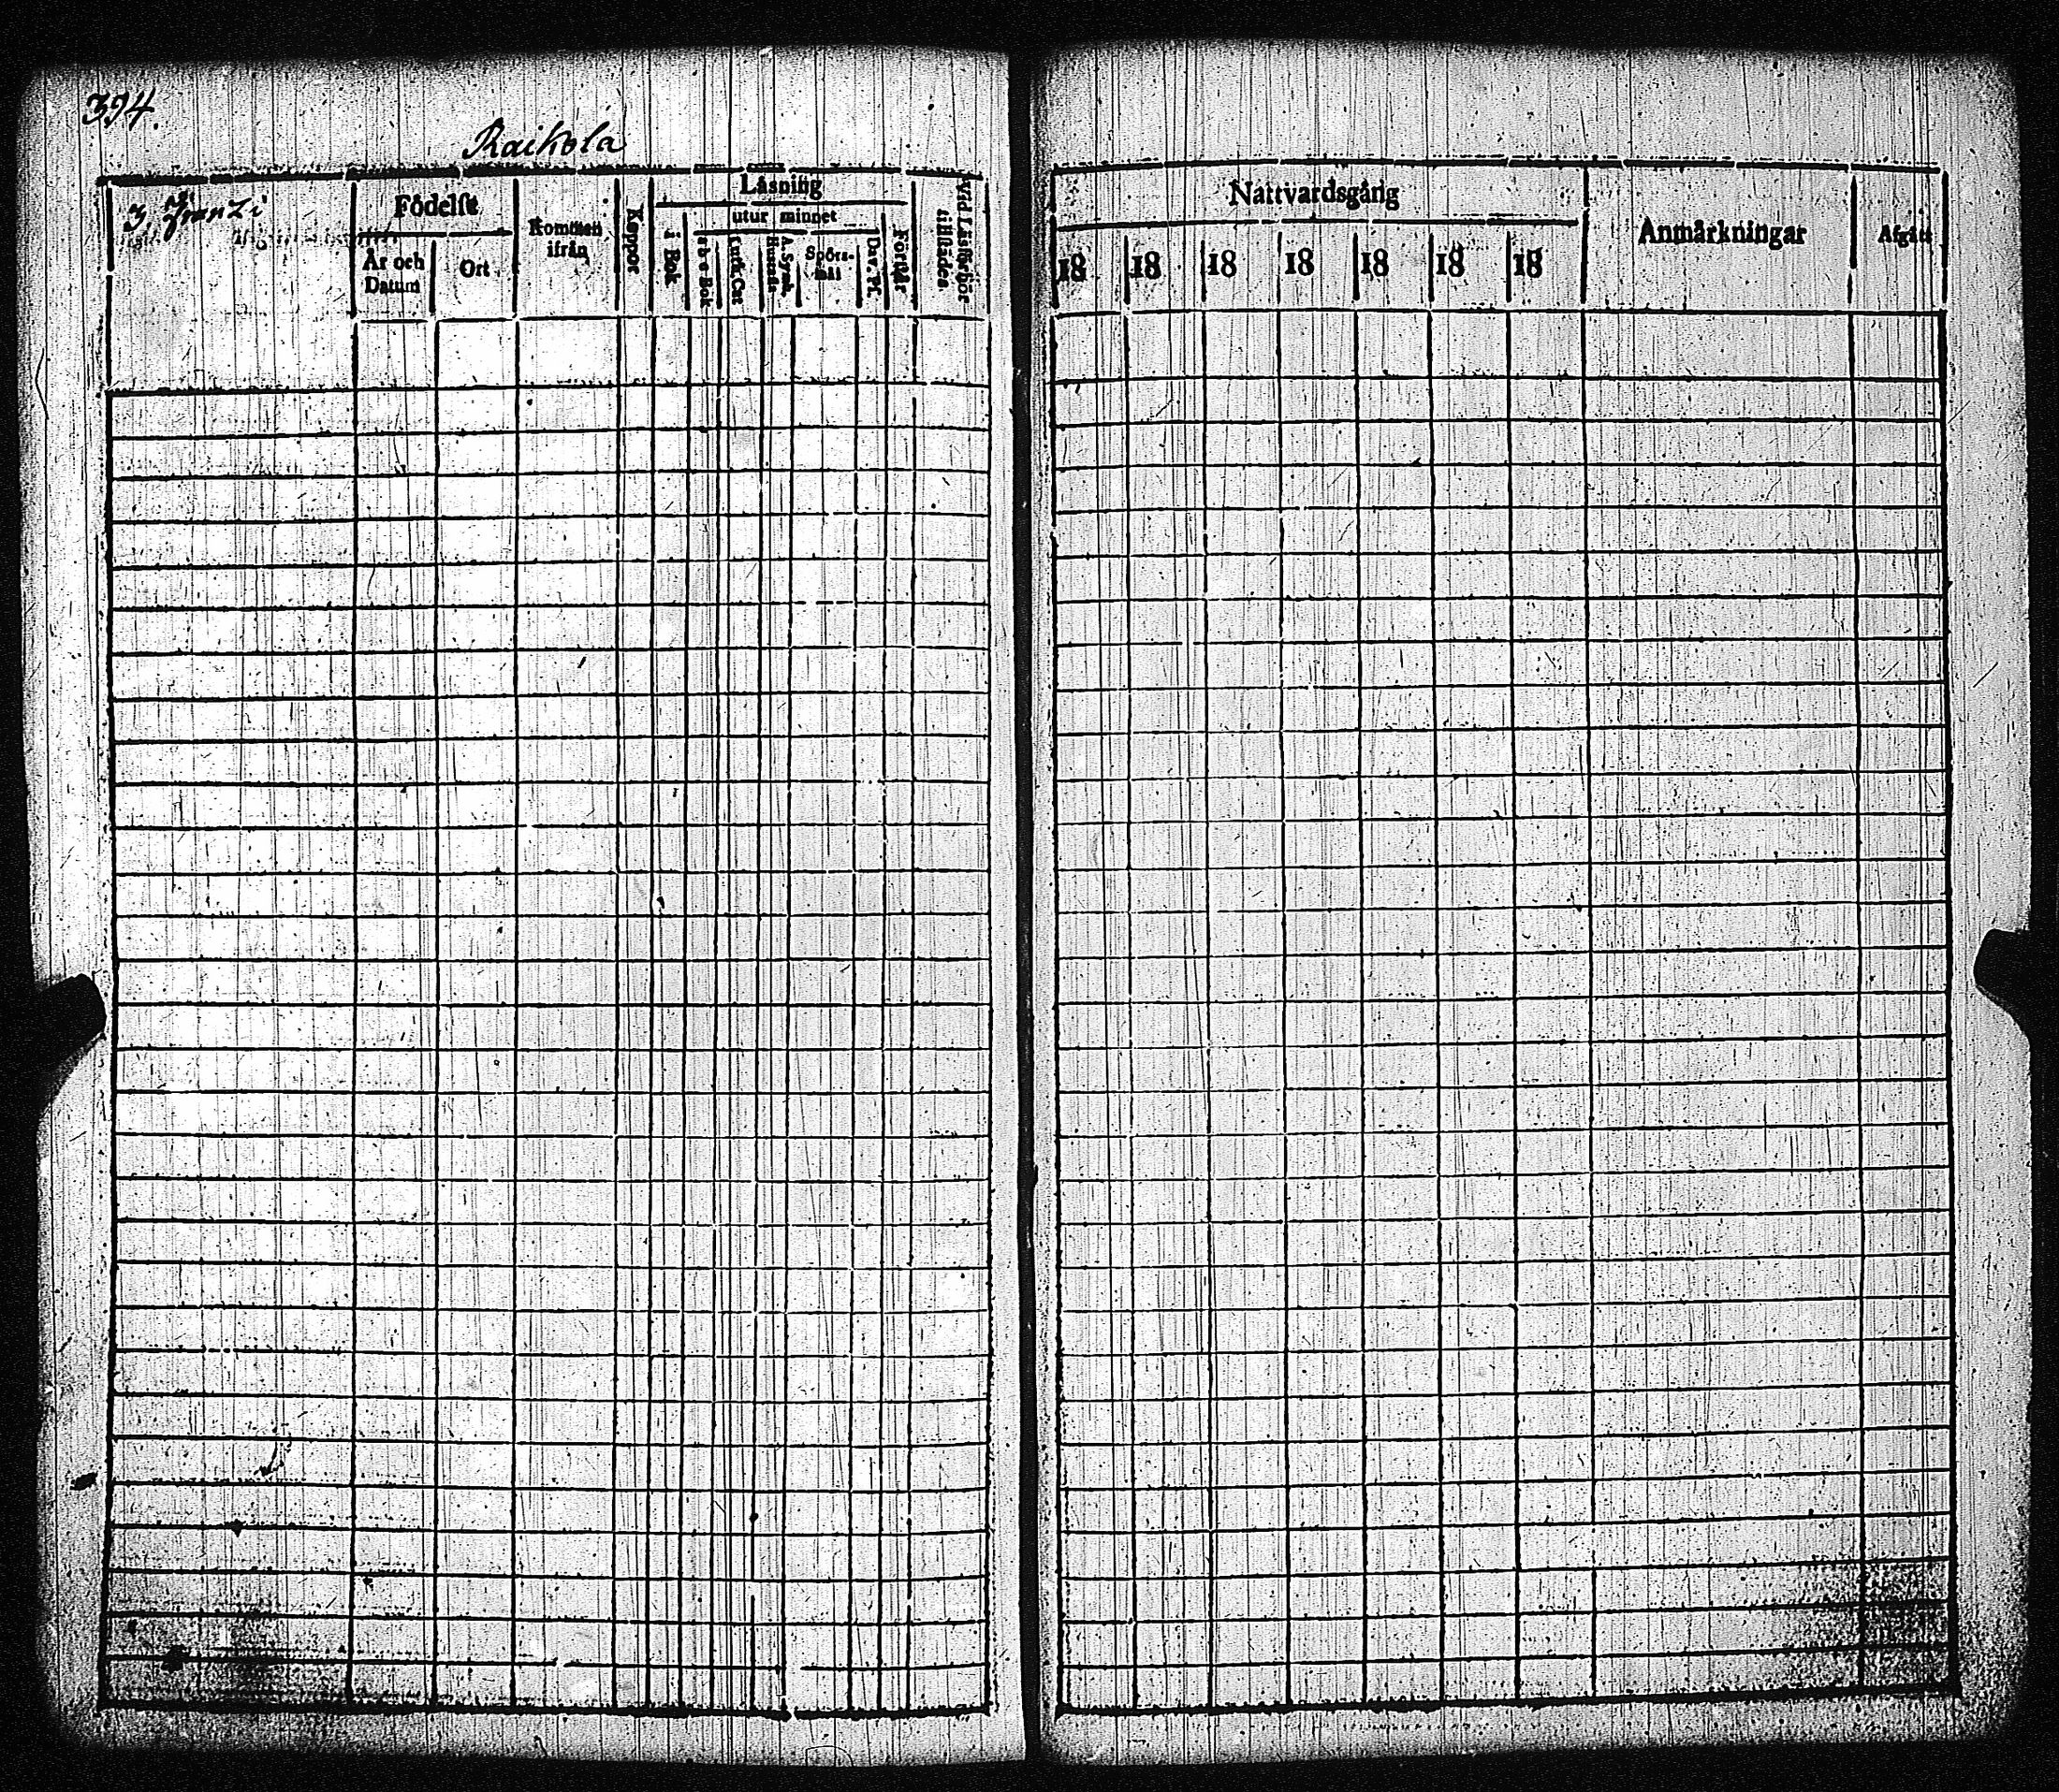 394.
Raikola
3 Franzi
Födelse
År och Datum
Ort
Kommen ifrån
Koppor
Läsning
utur minnet
i Bok
a b c Bok
Luth. Cat
A. Symb.
Spörs-mål
Dav. Ps.
Förstår
Vid Läsförhör tillstädes
Nattvardsgång
18 18 18 18 18 18 18
Anmärkningar
Afgått